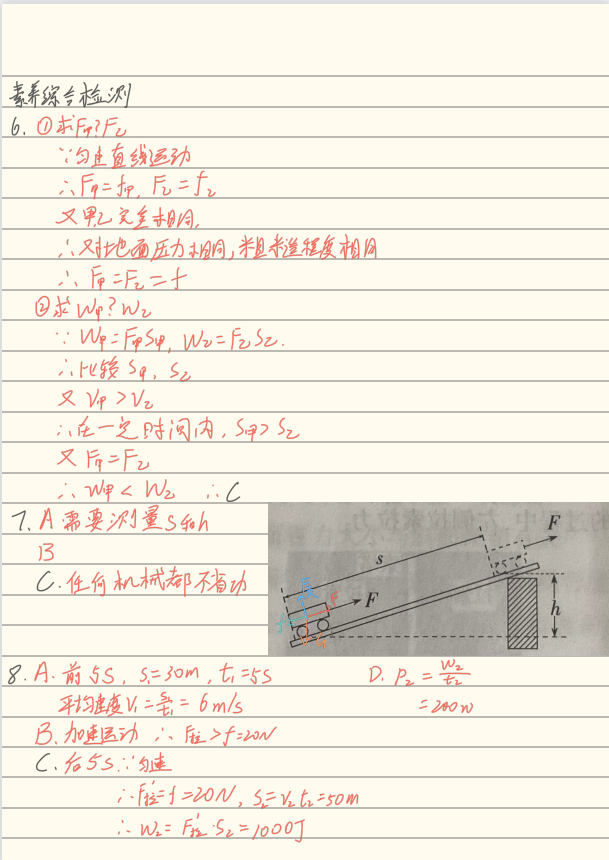 素养综合检测
6. ①求F甲?F乙
∵匀速直线运动
∴F甲=f甲, F乙=f乙
又甲乙完全相同,
∴对地面压力相同,粗糙程度相同
∴F甲=F乙=f
②求W甲?W乙
∵W甲=F甲S甲, W乙=F乙S乙.
∴比较S甲, S乙
又V甲>V乙
∴在一定时间内, S甲>S乙
又F甲=F乙
∴W甲<W乙 ∴C
7. A 需要测量S和h
B
C. 任何机械都不省功
F
s
F
h
8. A. 前5S, S₁=30m, t₁=5s
平均速度V₁=S₁/t₁=6m/s
B. 加速运动 ∴F拉>f=20N
C. 后5S∵匀速
∴F'拉=f=20N, S₂=V₂t₂=50m
∴W₂=F'拉·S₂=1000J
D. P₂=W₂/t₂
=200W